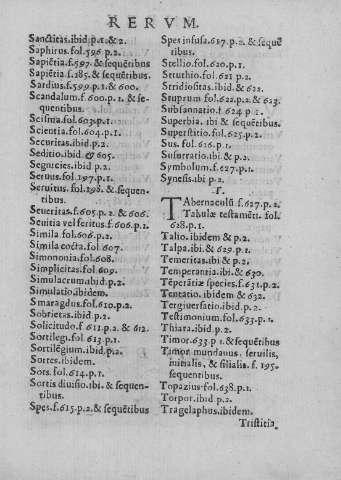 RERVM.
Sanctitas.ibid p.1.& 2.
Saphirus.fol.596 p.2.
Sapiẽtia.f.597. & sequẽtibns
Sapiẽtia.f.285.& sequẽtibus.
Sardius.f.599.p.1.& 600.
Scandalum.f.600.p.1. & se-
quentibus.
Scissura.fol.603.p.1.
Scientia.fol.604.p.1.
Securitas.ibid p.2.
Seditio.ibid & 605.
Segnicies.ibid p.2.
Seruus.fol.197.p.1.
Seruitus.fol.298. & sequen-
tibus.
Seueritas.f.605.p.2. & 606.
Seuitia vel feritus.f.606.p.1.
Simila.fol.606.p.2.
Simila cocta.fol.607.
Simononia.fol.608.
Simplicitas.fol 609.
Simulacrum.ibid.p.2.
Simulatio.ibidem.
Smaragdus.fol.610.p.2.
Sobrietas.ibid p.2.
Solicitudo.f 611.p.2. & 612.
Sortilegi.fol.613 p.1.
Sortilegium.ibid.p.2.
Sortes.ibidem.
Sors.fol.614.p.1.
Sortis diuisio.ibi.& sequen-
tibus.
Spes.f.615.p.2.& sequẽtibus
Spes infusa.617.p.2. & sequẽ
tibus.
Stellio.fol.620.p.1.
Struthio.fol.621 p.2.
Stridiositas.ibid.& 622.
Stuprum fol.622.p.2.& 623.
Subsannatio.f 624 p.1.
Superbia. ibi & sequẽtibus.
Superstitio.fol.625.p.2.
Sus. fol.626.p.1.
Susurratio.ibi & p.2.
Symbolum.f.627.p.1.
Synesis.ibi p.2.
.T.
TAbernaculũ f.627.p.2.
Tabulæ testamẽti. fol.
628.p.1.
Talio.ibidem & p.2.
Talpa.ibi.& 629.p.1.
Temeritas.ibi & p.2.
Temperantia.ibi.& 630.
Tẽperãtiæ species.f.631.p.2.
Tentatio.ibidem & 632.
Tergiuersatio.ibid.p.2.
Testimonium.fol.633.p.1.
Thiara.ibid.p.2.
Timor.633 p 1.&sequẽtibus
Timor mundanus, seruilis,
initialis, & filialis. f. 195.
sequentibus.
Topazius fol.638.p.1.
Torpor.ibid p.2.
Tragelaphus.ibidem.
Tristitia